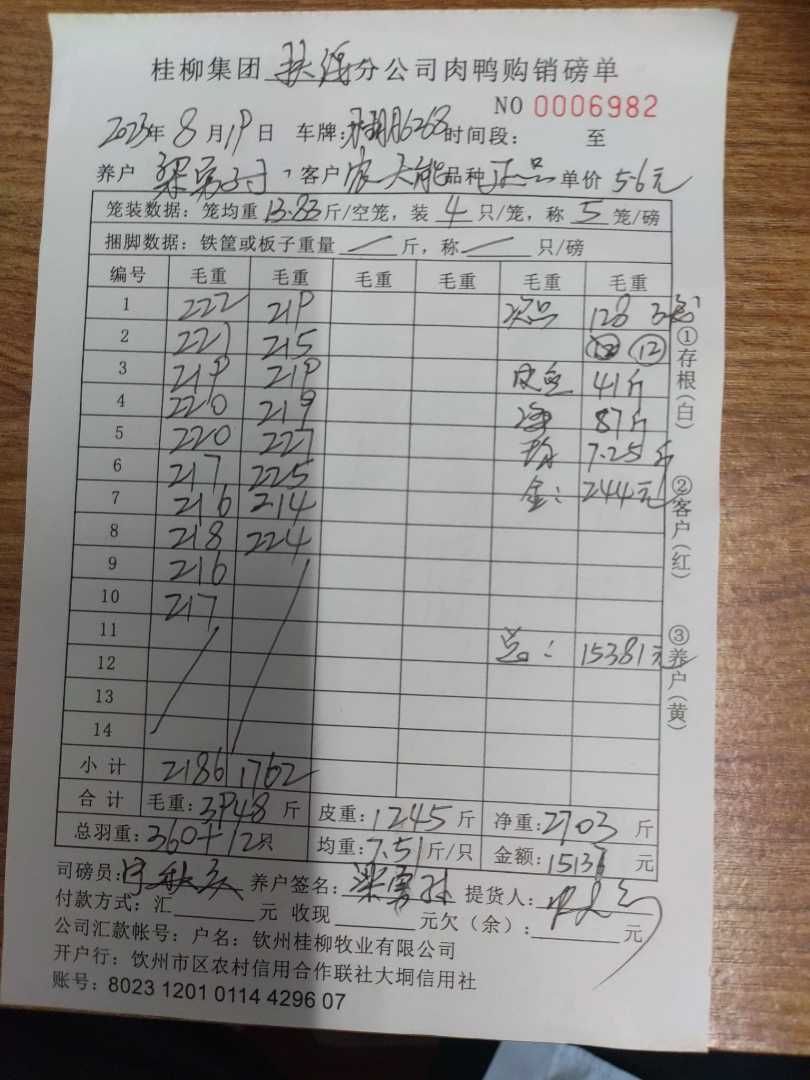 桂柳集团 分公司肉鸭购销磅单
NO 0006982
2023年 8 月 19 日 车牌: 6268 时间段: 至
养户 梁 客户 农 能 品种 正品 单价 5.6元
笼装数据: 笼均重 13.83 斤/空笼, 装 4 只/笼, 称 5 笼/磅
捆脚数据: 铁筐或板子重量 / 斤, 称 / 只/磅
编号 毛重 毛重 毛重 毛重 毛重 毛重
1 222 219 次品 128
2 221 215 12
3 219 219 皮重 41斤
4 220 219 净 87斤
5 220 227 均 7.25斤
6 217 225 金: 244元
7 216 214
8 218 224
9 216
10 217
11 总: 15381元
12
13
14
小计 2186 1762
合计 毛重: 3948 斤 皮重: 1245 斤 净重: 2703 斤
总羽重: 360+12只 均重: 7.51 斤/只 金额: 15137 元
司磅员: 养户签名: 梁 提货人:
付款方式: 汇 元 收现 元欠(余): 元
公司汇款帐号: 户名: 钦州桂柳牧业有限公司
开户行: 钦州市区农村信用合作联社大垌信用社
账号: 8023 1201 0114 4296 07
①存根(白) ②客户(红) ③养户(黄)